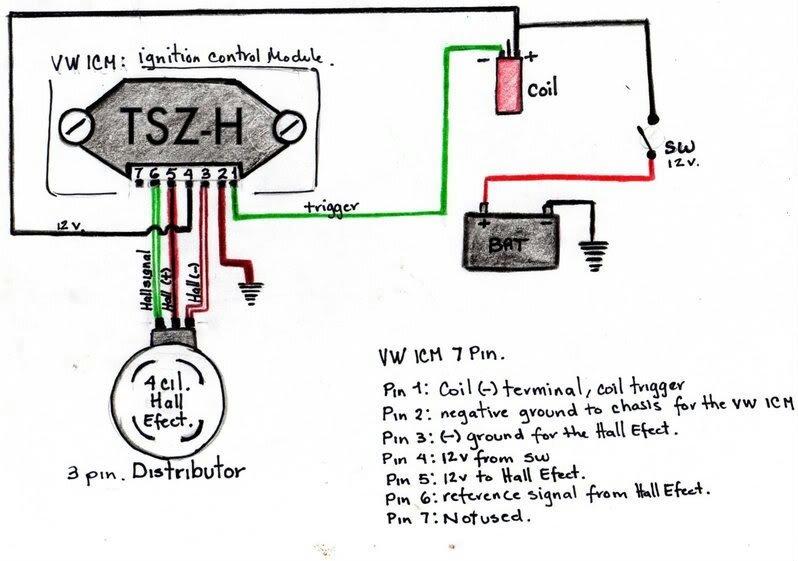 VW ICM: ignition control Module.
- +
Coil
TSZ-H
7 6 5 4 3 2 1
SW
12v.
trigger
12v.
+ -
BAT
Hall signal
Hall (+)
Hall (-)
4 cil.
Hall
Efect.
3 pin. Distributor
VW ICM 7 Pin.
Pin 1: Coil (-) terminal, coil trigger
Pin 2: negative ground to chasis for the VW ICM
Pin 3: (-) ground for the Hall Efect.
Pin 4: 12v from SW
Pin 5: 12v to Hall Efect.
Pin 6: reference signal from Hall Efect.
Pin 7: Not used.